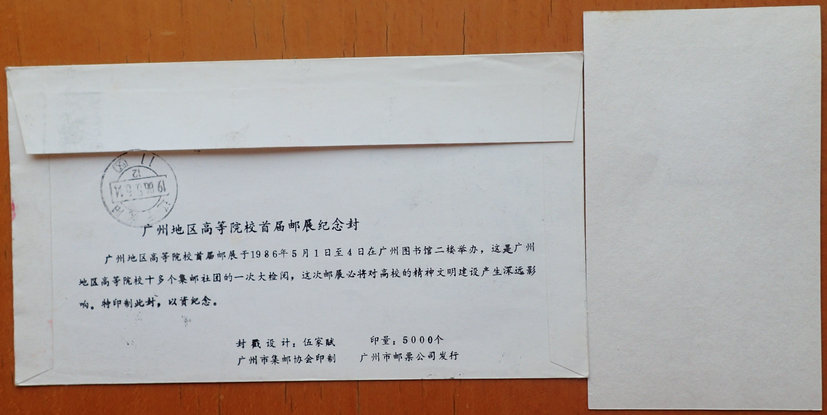 广州地区高等院校首届邮展纪念封
广州地区高等院校首届邮展于1986年5月1日至4日在广州图书馆二楼举办，这是广州
地区高等院校十多个集邮社团的一次大检阅，这次邮展必将对高校的精神文明建设产生深远影
响。特印制此封，以资纪念。
封戳设计：伍家赋 印量：5000个
广州市集邮协会印制 广州市邮票公司发行